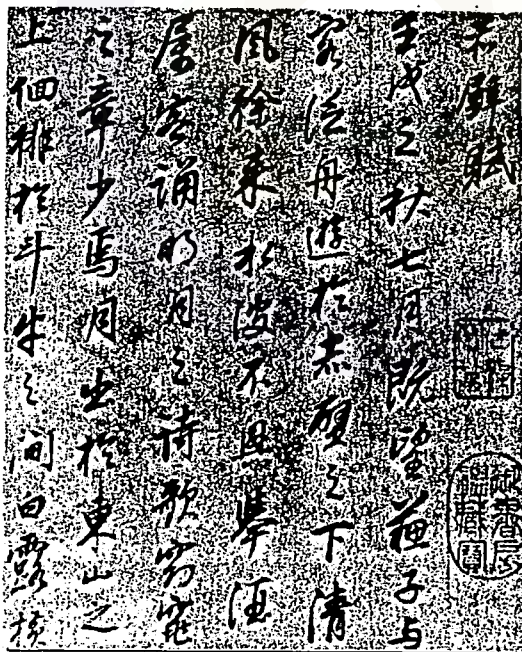 赤壁賦
壬戌之秋七月既望蘇子与
客泛舟遊於赤壁之下清
風徐来水波不興舉酒
属客誦明月之詩歌窈窕
之章少焉月出於東山之
上徊徘於斗牛之间白露橫
御書房鑑藏寶